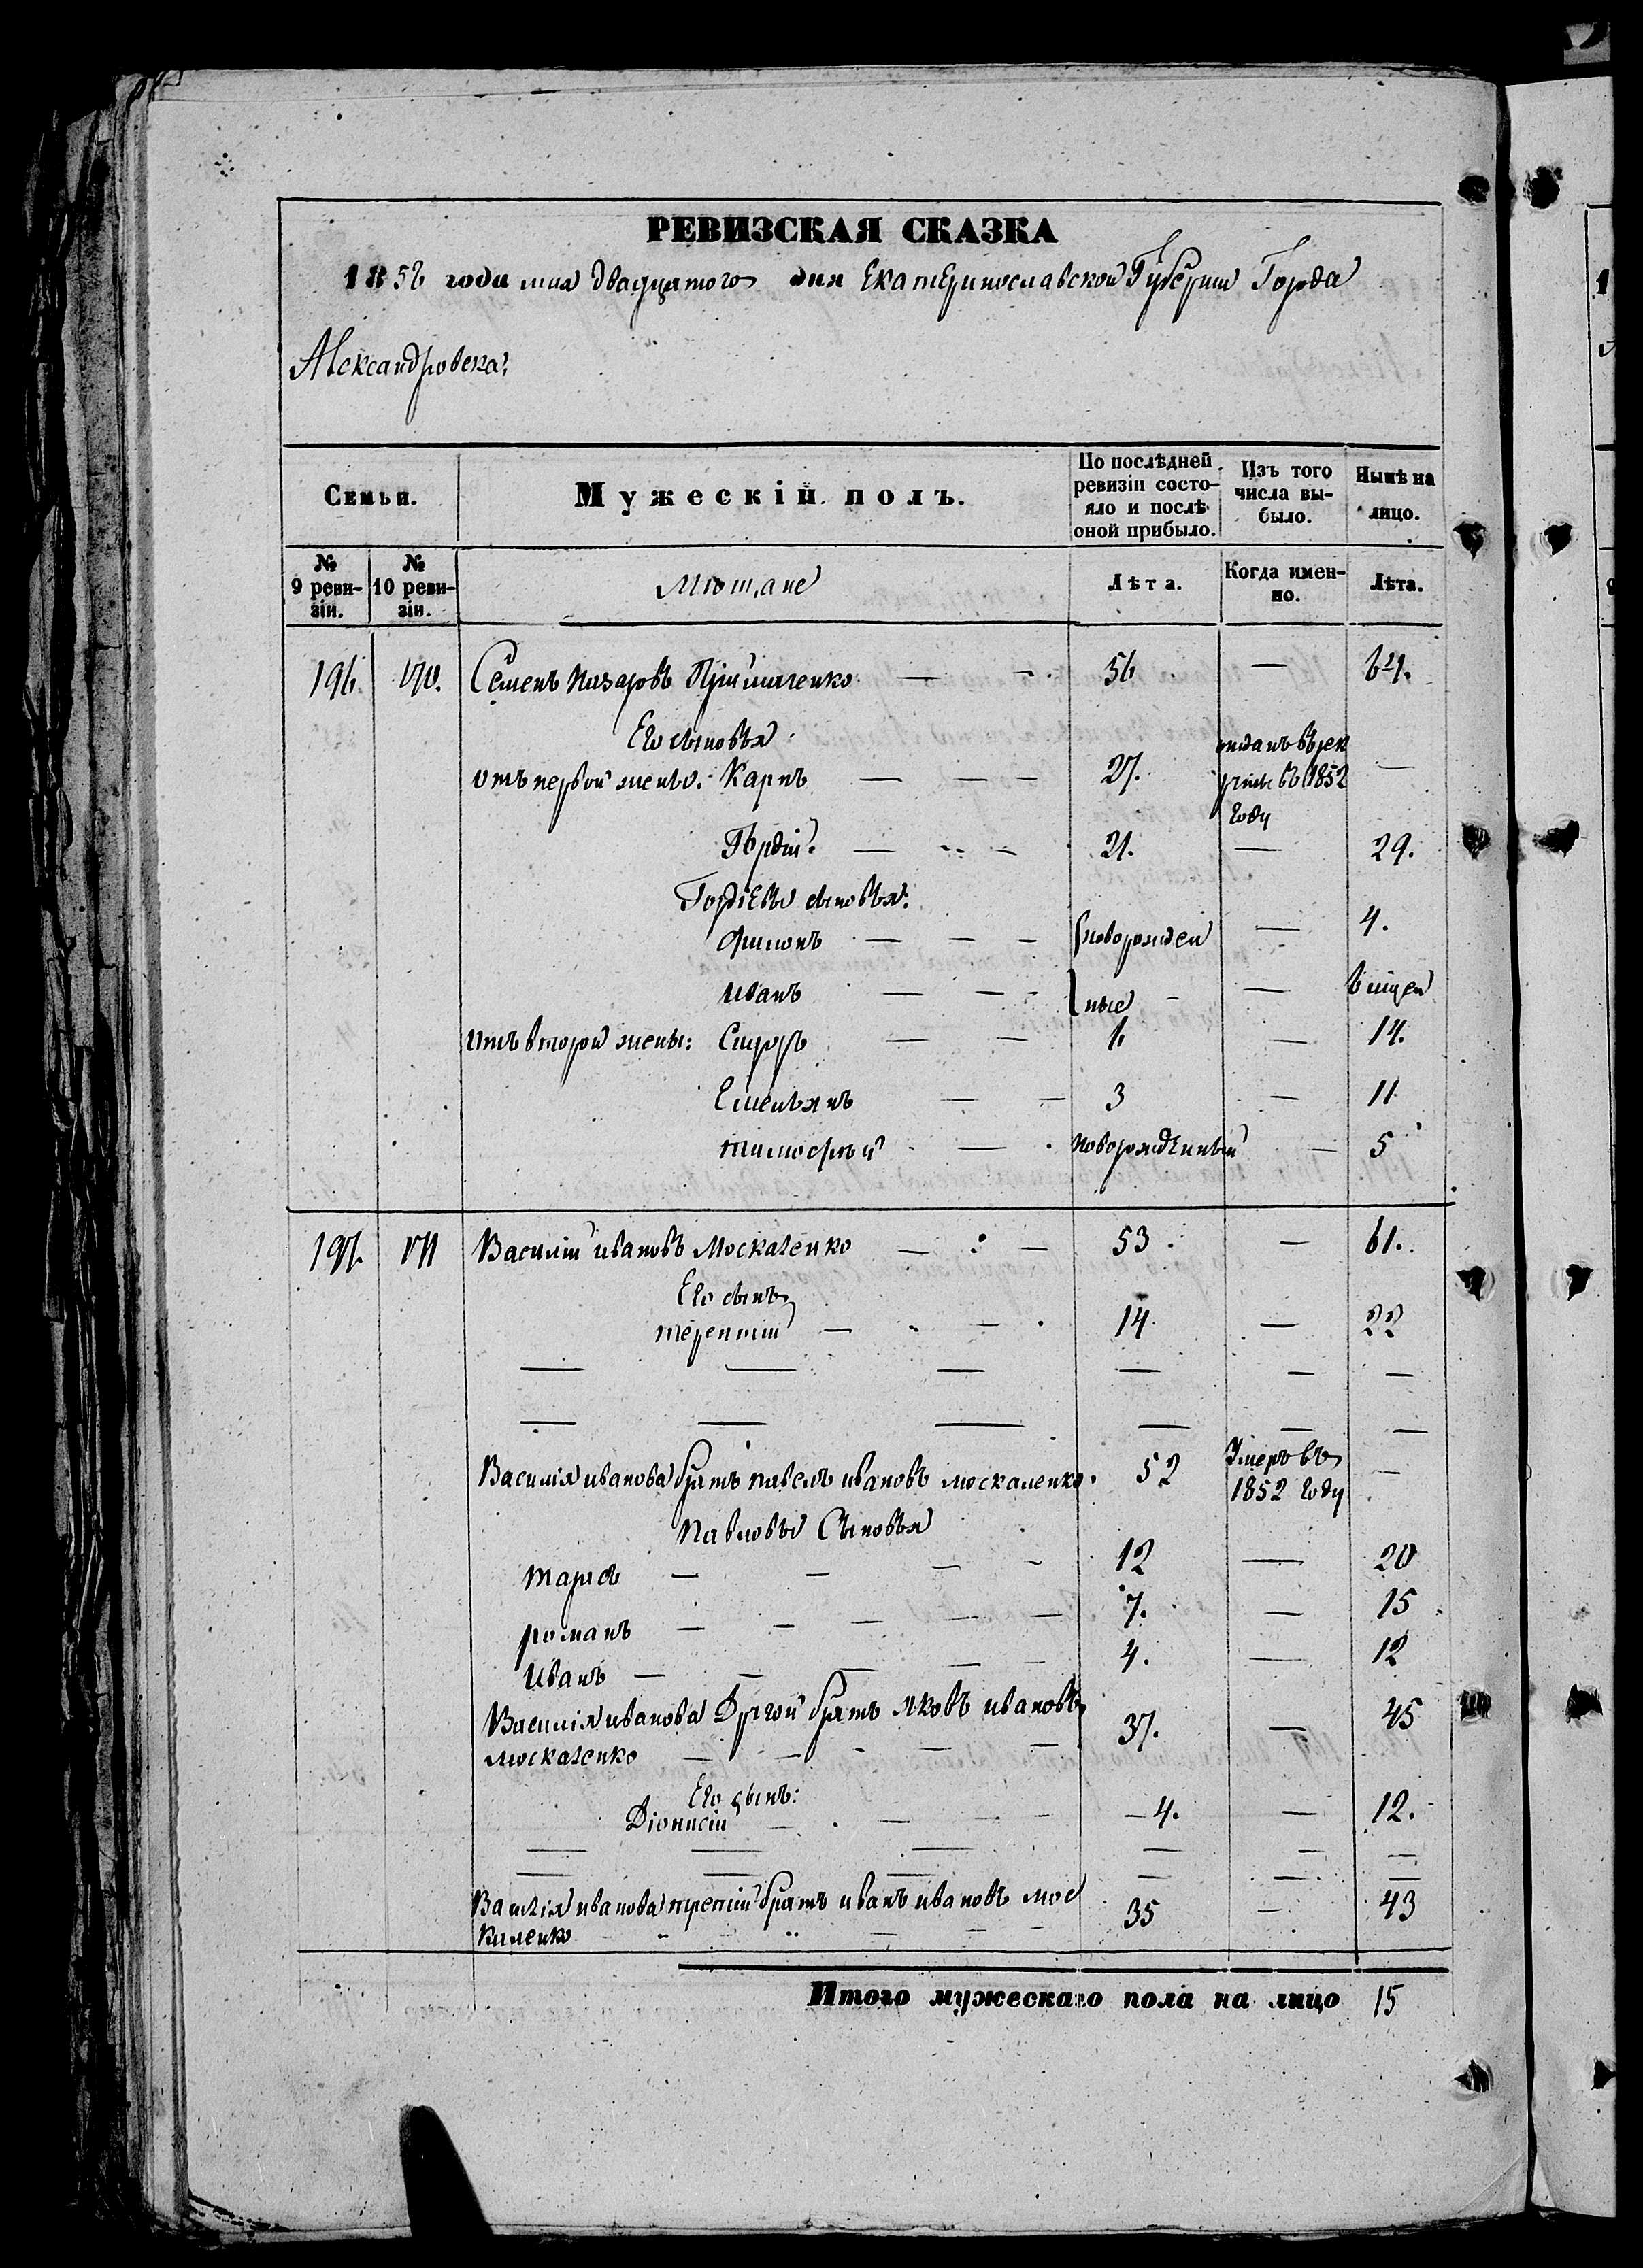 РЕВИЗСКАЯ СКАЗКА
1858 года мая двадцатого дня Екатеринославской Губерніи Города
Александровска,
Семьи. Мужескій полъ. По послѣдней ревизіи состояло и послѣ оной прибыло. Изъ того числа выбыло. Нынѣ на лицо.
№ 9 ревизіи. № 10 ревизіи. Мѣщане Лѣта. Когда именно. Лѣта.
196. 170. Семенъ Назаровъ — — 56 — 64.
Его сыновья
отъ первой жены: Карпъ — — — 27. отданъ въ рек
руты въ 1852 —
году
Гордій. — — — 21. — 29.
Гордіевы сыновья:
Филонъ — — — новорожден — 4.
Иванъ — — — ные — 6 мцен
отъ второй жены: Сидоръ — — 6 — 14.
Емельянъ — — 3 — 11
Тимофѣй — новорожденный — 5
197. 171 Василій Ивановъ Москаленко — — 53. — 61.
Его сынъ
Терентій — — 14 — 22
— — — — — —
— — — — — —
Василія Иванова братъ Павелъ Ивановъ Москаленко. 52 Умеръ въ —
1852 году
Павловы Сыновья
Тарасъ — — — — 12 — 20
Романъ — — — — — 7. — 15
Иванъ — — — — — 4. — 12
Василія Иванова Другой братъ Яковъ Ивановъ
Москаленко — — — — — 37. — 45
Его сынъ:
Діонисій — — — — 4. — 12.
— — — — — —
— — — — — —
Василія Иванова третій братъ Иванъ Ивановъ Мос
каленко — — — — 35 — 43
Итого мужескаго пола на лицо 15